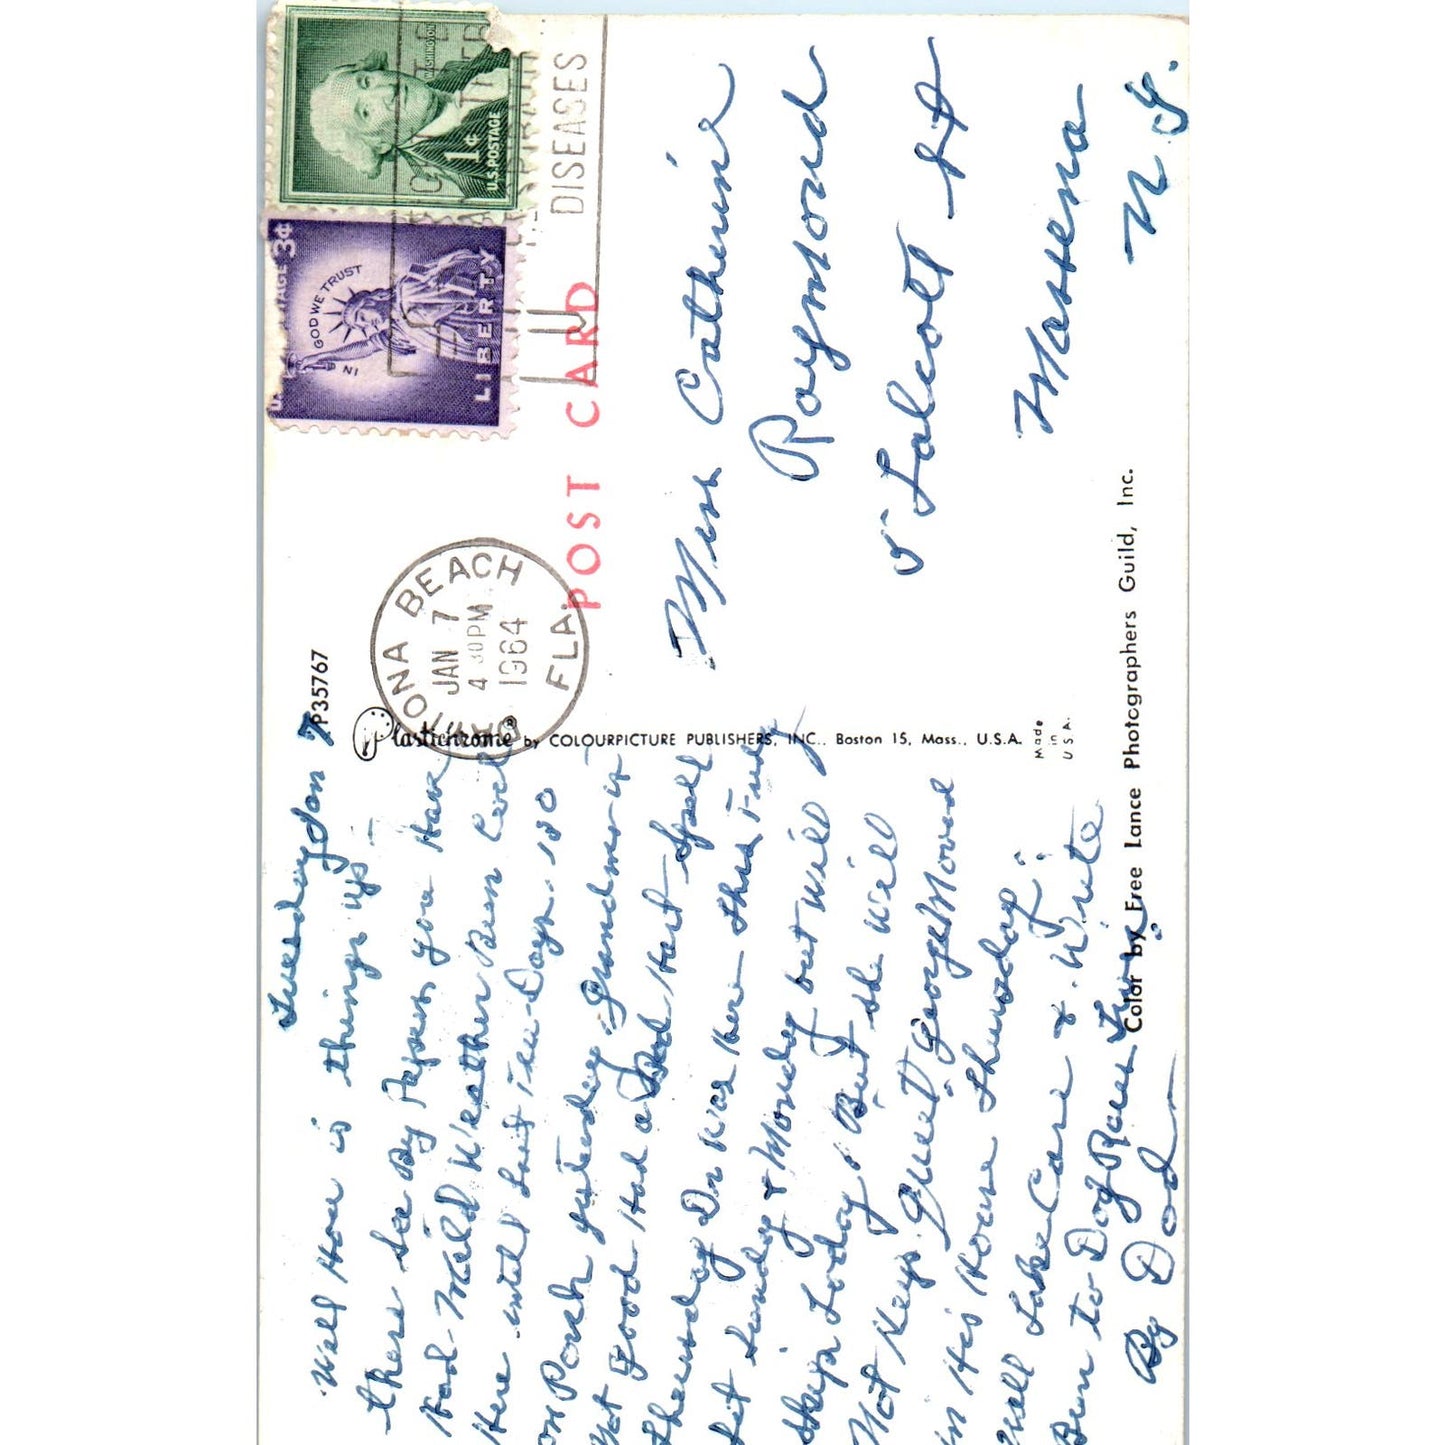 Tuesday Jan 7
Well How is things up
there See By Papers you Have
Had Mild Weather Been Cool
Here until Last Two Days. 180
on Porch yesterday Grandma is
Not Good Had a Bad Hart Spell
Thursday Dr was Here Thur Friday
Sat Sunday & Monday but will
skip Today But she will
Not Keep Quiet George Moved
in His House Thursday
Well Take Care & Write
Been to Dog Races Twice
By Dad
P35767
Plastichrome® by COLOURPICTURE PUBLISHERS, INC., Boston 15, Mass., U.S.A.
Made in U.S.A.
Color by Free Lance Photographers Guild, Inc.
DAYTONA BEACH
JAN 7
4 30PM
1964
FLA.
RESPIRATORY
DISEASES
WASHINGTON
1¢
U.S. POSTAGE
U.S. POSTAGE 3¢
IN GOD WE TRUST
LIBERTY
POST CARD
Miss Catherine
Raymond
5 Talcott St
Massena
N.Y.